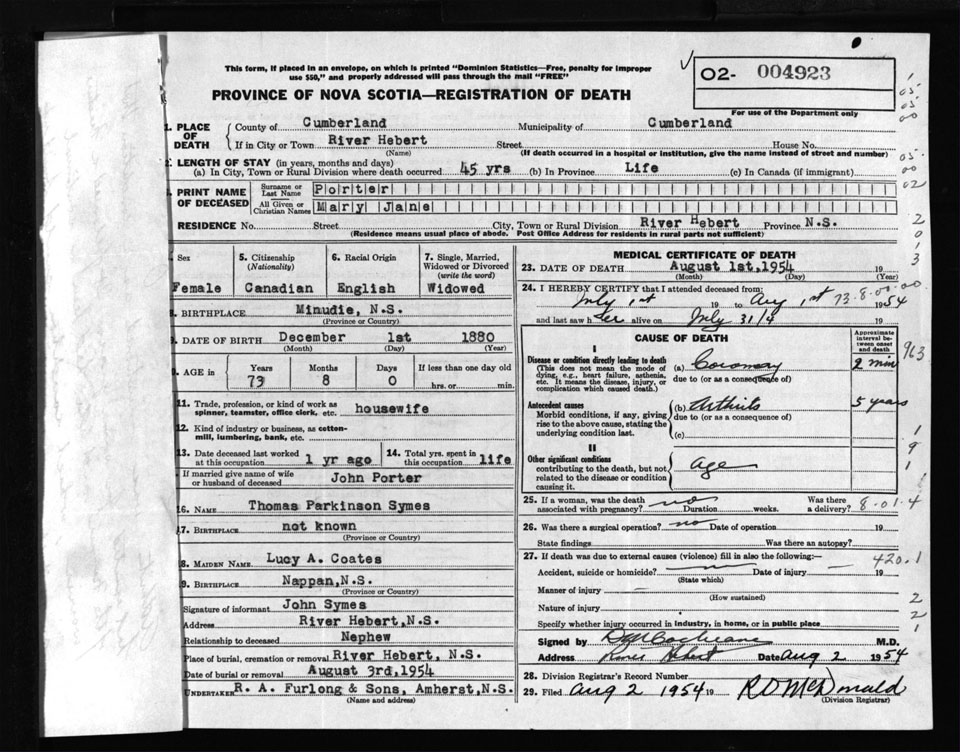 This form, if placed in an envelope, on which is printed "Dominion Statistics—Free, penalty for improper
use $50," and properly addressed will pass through the mail "FREE"
PROVINCE OF NOVA SCOTIA—REGISTRATION OF DEATH
O2- 004923
For use of the Department only
1. PLACE OF DEATH
County of Cumberland Municipality of Cumberland
If in City or Town River Hebert Street House No.
(Name) (If death occurred in a hospital or institution, give the name instead of street and number)
LENGTH OF STAY (in years, months and days)
(a) In City, Town or Rural Division where death occurred 45 yrs (b) In Province Life (c) In Canada (if immigrant)
PRINT NAME OF DECEASED
Surname or Last Name Porter
All Given or Christian Names Mary Jane
RESIDENCE No. Street City, Town or Rural Division River Hebert Province N.S.
(Residence means usual place of abode. Post Office Address for residents in rural parts not sufficient)
Sex
Female
5. Citizenship
(Nationality)
Canadian
6. Racial Origin
English
7. Single, Married,
Widowed or Divorced
(write the word)
Widowed
BIRTHPLACE Minudie, N.S.
(Province or Country)
DATE OF BIRTH December 1st 1880
(Month) (Day) (Year)
AGE in
Years Months Days If less than one day old
73 8 0 hrs. or min.
11. Trade, profession, or kind of work as
spinner, teamster, office clerk, etc. housewife
12. Kind of industry or business, as cotton-
mill, lumbering, bank, etc.
13. Date deceased last worked
at this occupation 1 yr ago
14. Total yrs. spent in
this occupation life
If married give name of wife
or husband of deceased John Porter
16. NAME Thomas Parkinson Symes
17. BIRTHPLACE not known
(Province or Country)
8. MAIDEN NAME Lucy A. Coates
9. BIRTHPLACE Nappan, N.S.
(Province or Country)
Signature of informant John Symes
Address River Hebert, N.S.
Relationship to deceased Nephew
Place of burial, cremation or removal River Hebert, N.S.
Date of burial or removal August 3rd, 1954
UNDERTAKER R. A. Furlong & Sons, Amherst, N.S.
(Name and address)
MEDICAL CERTIFICATE OF DEATH
23. DATE OF DEATH August 1st, 1954 19
(Month) (Day) (Year)
24. I HEREBY CERTIFY that I attended deceased from:
July 1st 19 to Aug 1st 1954
73-8-00-00
and last saw her alive on July 31/4 19
CAUSE OF DEATH
Approximate
interval be-
tween onset
and death
I
Disease or condition directly leading to death
(This does not mean the mode of
dying, e.g., heart failure, asthenia,
etc. It means the disease, injury, or
complication which caused death.)
(a) Coronary 2 min
due to (or as a consequence of)
963
Antecedent causes
Morbid conditions, if any, giving
rise to the above cause, stating the
underlying condition last.
(b) Arthritis 5 years
due to (or as a consequence of)
(c)
II
Other significant conditions
contributing to the death, but not
related to the disease or condition
causing it.
age
25. If a woman, was the death
associated with pregnancy? no Duration weeks. Was there
a delivery? 8-01-4
26. Was there a surgical operation? no Date of operation 19
State findings Was there an autopsy?
27. If death was due to external causes (violence) fill in also the following:—
420.1
Accident, suicide or homicide? Date of injury 19
(State which)
Manner of injury
(How sustained)
Nature of injury
Specify whether injury occurred in industry, in home, or in public place
Signed by Cochrane M.D.
Address River Hebert Date Aug 2 1954
28. Division Registrar's Record Number
29. Filed Aug 2 1954 19 R D McDonald
(Division Registrar)